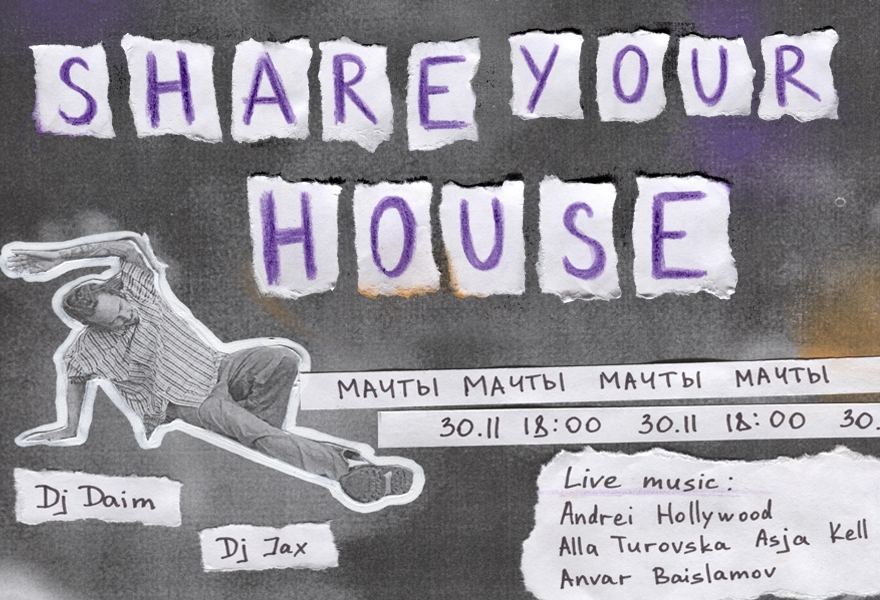 SHARE YOUR
HOUSE
МАЧТЫ МАЧТЫ МАЧТЫ МАЧТЫ
30.11 18:00 30.11 18:00 30.
Dj Daim
Dj Jax
Live music:
Andrei Hollywood
Alla Turovska Asja Kell
Anvar Baislamov